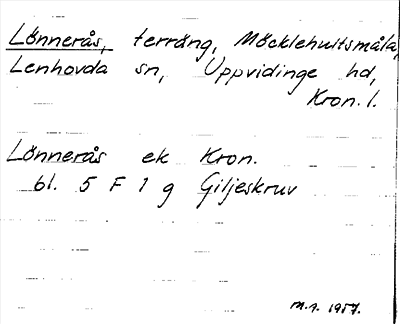 Lönnerås, terräng, Möcklehultsmåla,
Lenhovda sn, Uppvidinge hd,
Kron. l.
Lönnerås ek Kron.
bl. 5 F 1 g Giljeskruv
M.A. 1957.